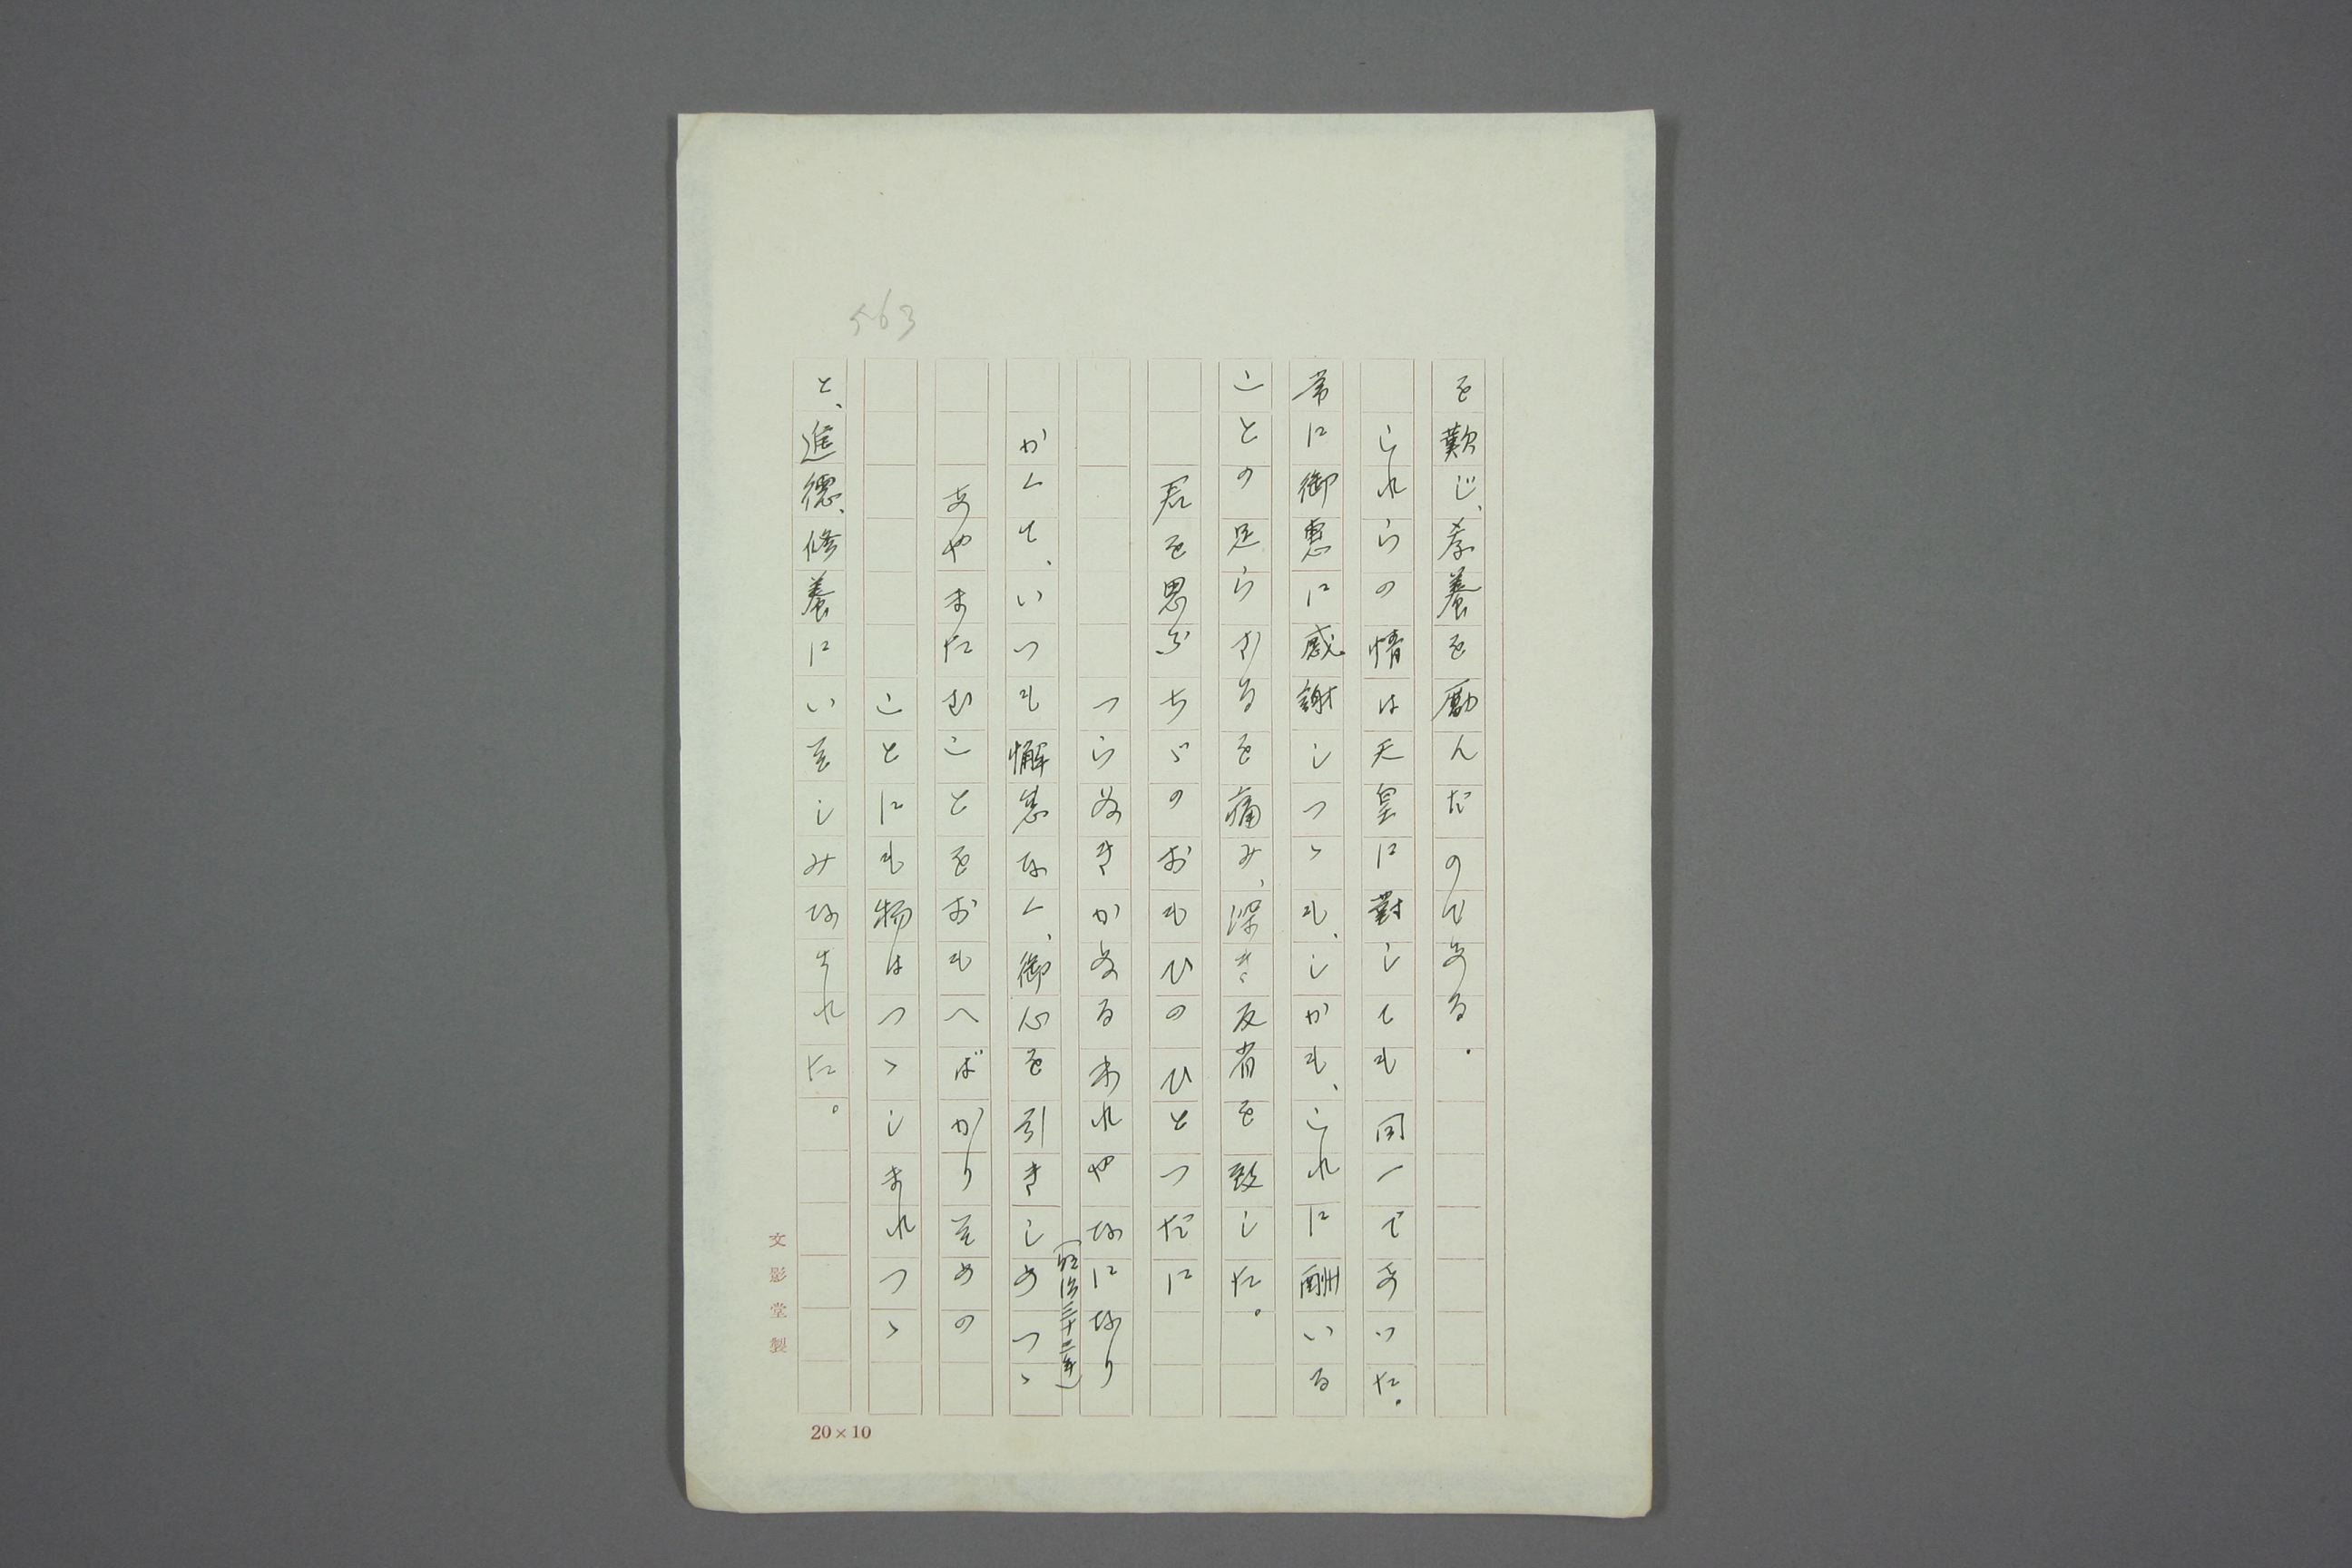 563
を歎じ、孝養を励んだのである。
これらの情は天皇に對しても同一であつた。
常に御恵に感謝しつゝも、しかも、これに酬いる
ことの足らざるを痛み、深き反省を致した。
君を思ふちゞのおもひのひとつだに
つらぬきかぬるあれやなになり
(明治三十三年)
かくて、いつも懈怠なく、御心を引きしめつゝ
あやまたむことをおもへばかりそめの
ことにも物はつゝしまれつゝ
と、進德、修養にいそしみなされた。
文影堂製
20×10